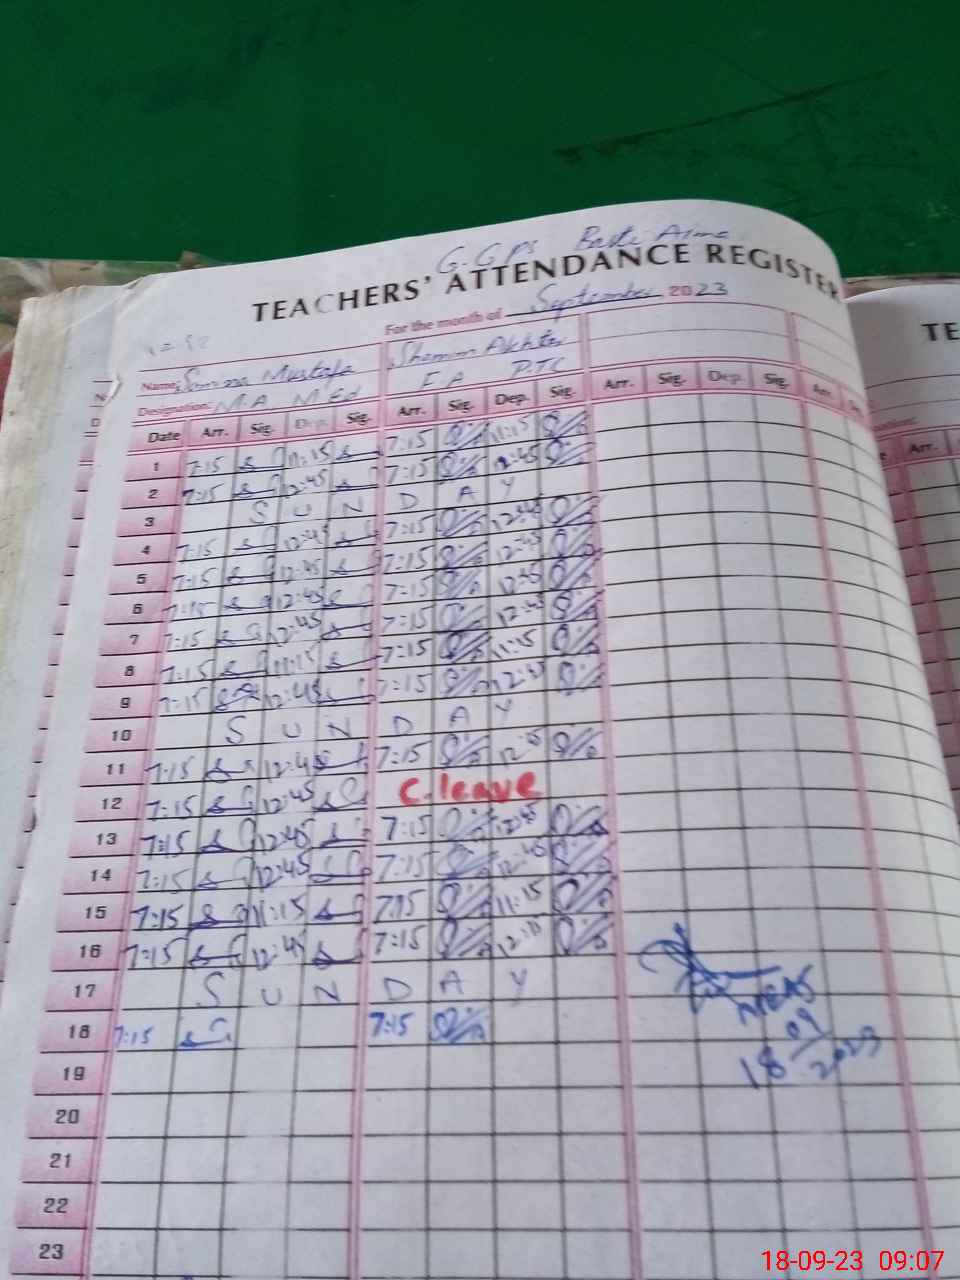 G.GPS Basti Aima
TEACHERS' ATTENDANCE REGISTER
For the month of September 2023
Name: Mustafa Shamim Akhtar
Designation: M.A M.Ed F.A PTC
Date Arr. Sig. Dep. Sig. Arr. Sig. Dep. Sig. Arr. Sig. Dep. Sig. Arr.
1 7:15 11:15 7:15 11:15
2 7:15 12:45 7:15 12:45
3 SUNDAY
4 7:15 12:45 7:15 12:45
5 7:15 12:45 7:15 12:45
6 7:15 12:45 7:15 12:45
7 7:15 12:45 7:15 12:45
8 7:15 11:15 7:15 11:15
9 7:15 12:45 7:15 12:45
10 SUNDAY
11 7:15 12:45 7:15
12 7:15 12:45 C.leave
13 7:15 12:45 7:15 12:45
14 7:15 12:45 7:15 12:45
15 7:15 11:15 7:15 11:15
16 7:15 12:45 7:15
17 SUNDAY
18 7:15 7:15
18/09/2023
19
20
21
22
23
TE
Arr.
18-09-23 09:07